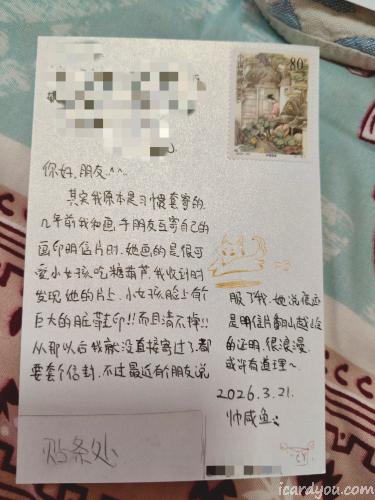 80分
中国邮政
你好,朋友^^
其实我原本是习惯套寄的,
几年前我和画手朋友互寄自己的
画印明信片时,她画的是很可
爱小女孩吃糖葫芦,我收到时
发现她的片上,小女孩脸上有个
巨大的脏鞋印!!而且清不掉!!
从那以后我就没直接寄过了,都
要套个信封,不过最近有个朋友说
服了我,她说痕迹
是明信片翻山越岭
的证明,很浪漫,
或许有道理~
2026.3.21.
帅咸鱼
贴条处
icardyou.com